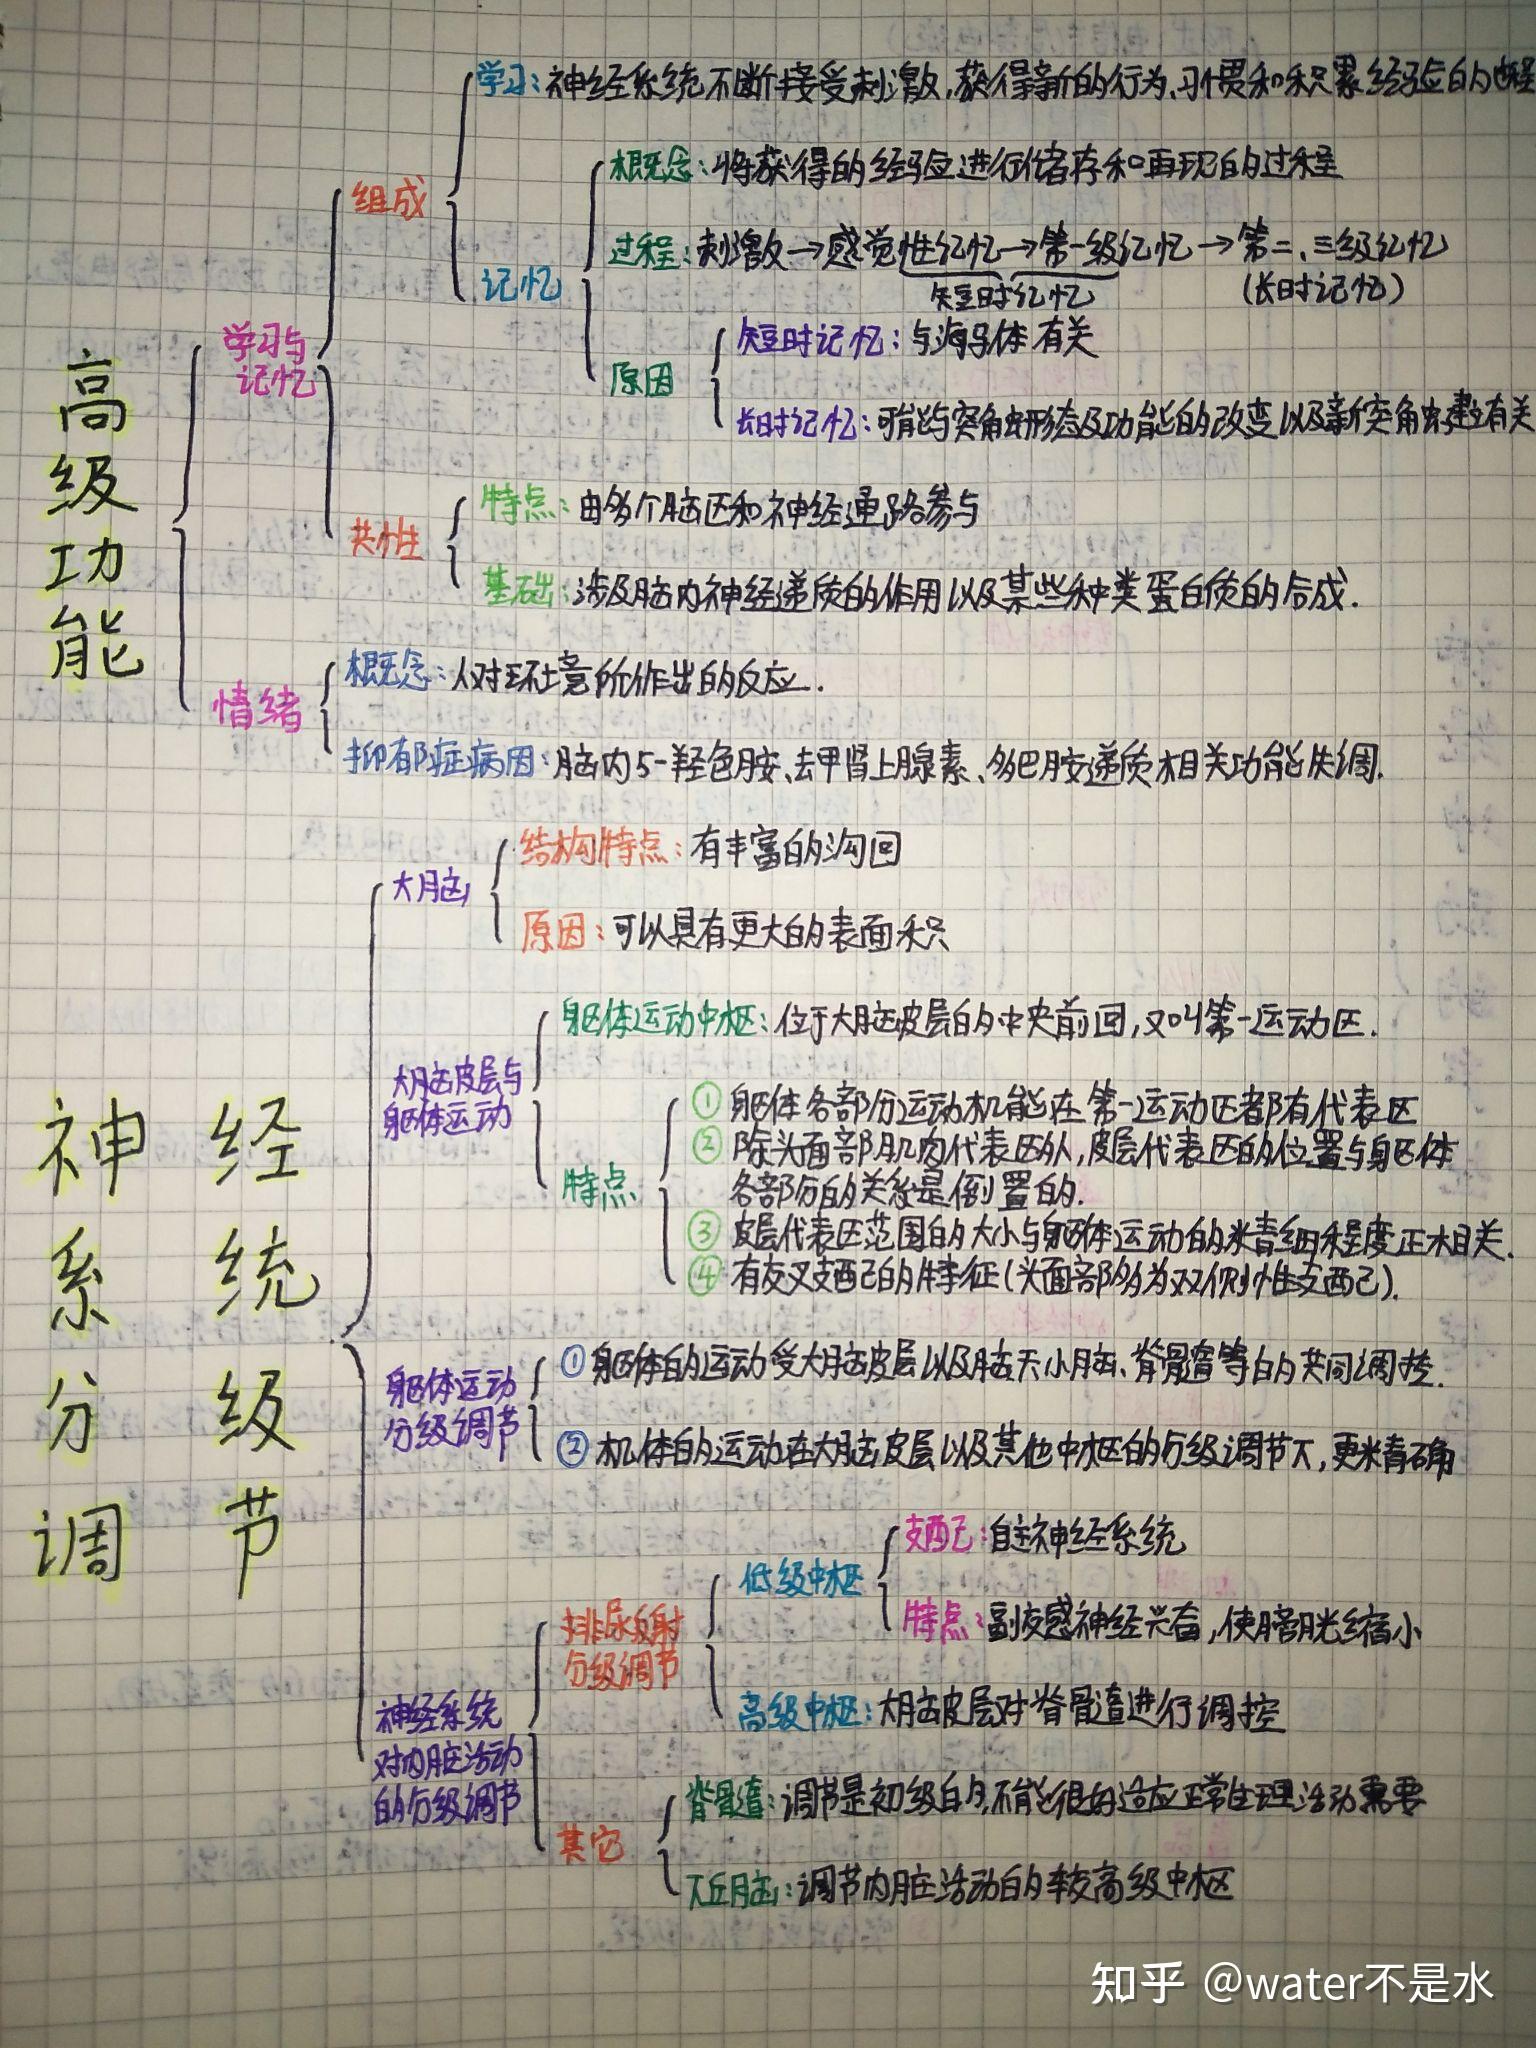 高级功能
学习与
记忆
组成
学习：神经系统不断接受刺激，获得新的行为、习惯和积累经验的过程
记忆
概念：将获得的经验进行储存和再现的过程
过程：刺激→感觉性记忆→第一级记忆→第二、三级记忆
短时记忆
（长时记忆）
原因
短时记忆：与海马体有关
长时记忆：可能与突触形态及功能的改变以及新突触建立有关
共性
特点：由多个脑区和神经通路参与
基础：涉及脑内神经递质的作用以及某些种类蛋白质的合成.
情绪
概念：人对环境所作出的反应.
抑郁症病因：脑内5-羟色胺、去甲肾上腺素、多巴胺递质相关功能失调.
神经系统分级调节
大脑
结构特点：有丰富的沟回
原因：可以具有更大的表面积
大脑皮层与
躯体运动
躯体运动中枢：位于大脑皮层的中央前回，又叫第一运动区.
特点
① 躯体各部分运动机能在第一运动区都有代表区
② 除头面部肌肉代表区外，皮层代表区的位置与躯体
各部分的关系是倒置的.
③ 皮层代表区范围的大小与躯体运动的精细程度正相关.
④ 有交叉支配的特征(头面部多为双侧性支配).
躯体运动
分级调节
① 躯体的运动受大脑皮层以及脑干小脑、脊髓等的共同调控.
② 机体的运动在大脑皮层以及其他中枢的分级调节下，更精确
神经系统
对内脏活动
的分级调节
排尿反射
分级调节
低级中枢
支配：自主神经系统
特点：副交感神经兴奋，使膀胱缩小
高级中枢：大脑皮层对脊髓进行调控
其它
脊髓：调节是初级的，不能很好适应正常生理活动需要
下丘脑：调节内脏活动的较高级中枢
知乎 @water不是水